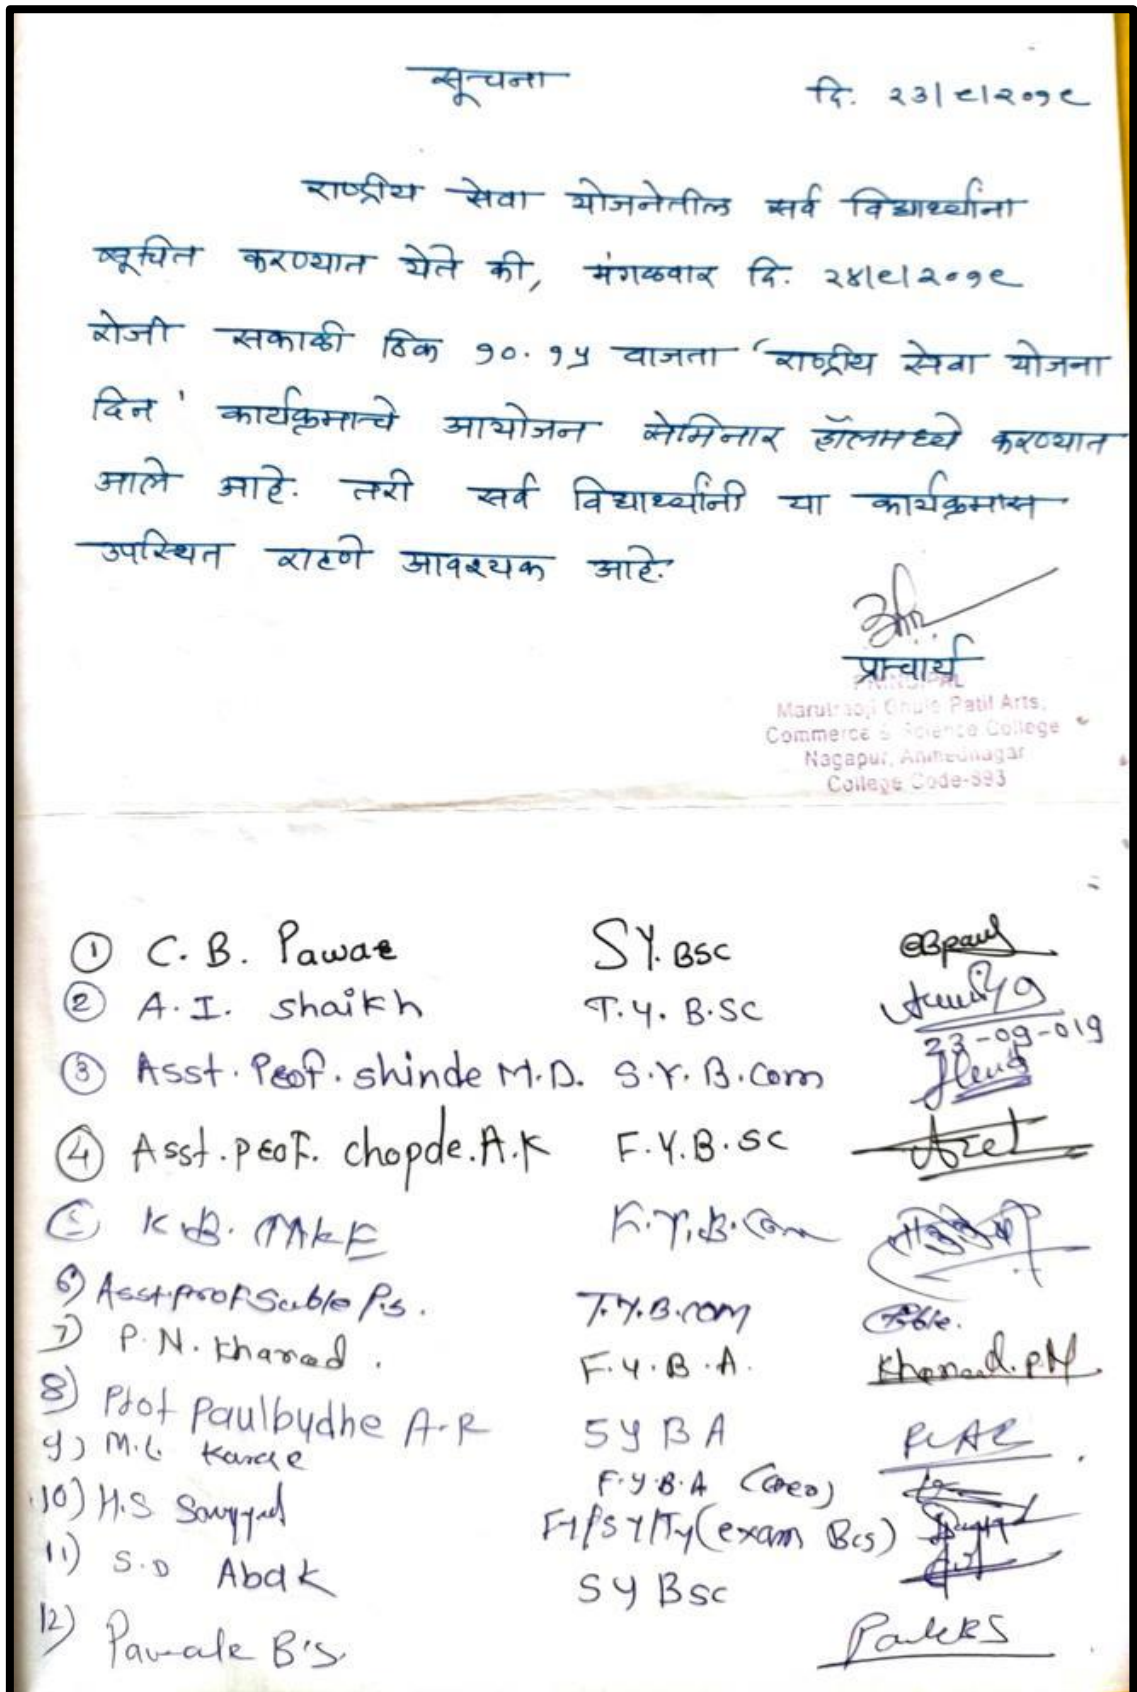 सूचना
दि. २३/९/२०१९
राष्ट्रीय सेवा योजनेतील सर्व विद्यार्थ्यांना
सूचित करण्यात येते की, मंगळवार दि. २४/९/२०१९
रोजी सकाळी ठिक १०.१५ वाजता 'राष्ट्रीय सेवा योजना
दिन' कार्यक्रमाचे आयोजन सेमिनार हॉलमध्ये करण्यात
आले आहे. तरी सर्व विद्यार्थ्यांनी या कार्यक्रमास
उपस्थित राहणे आवश्यक आहे.
प्राचार्य
PRINCIPAL
Marutraoji Ghule Patil Arts,
Commerce & Science College
Nagapur, Ahmednagar
College Code-993
① C. B. Pawar SY. BSC
② A. I. Shaikh T.Y. B.SC
23-09-019
③ Asst. Prof. Shinde M.D. S.Y. B.Com
④ Asst. Prof. Chopde. A.K F.Y.B.SC
⑤ K.B. F.Y.B.Com
6) Asst. prof. Sable P.S. T.Y.B.com
7) P.N. Kharad. F.Y.B.A. Kharad.P.N
8) Prof Paulbudhe A.R SYBA
9) M.L. F.Y.B.A
10) H.S Sayyed FY/SY/TY (exam BCS)
11) S.D Abak SYBSC
12) B.S.